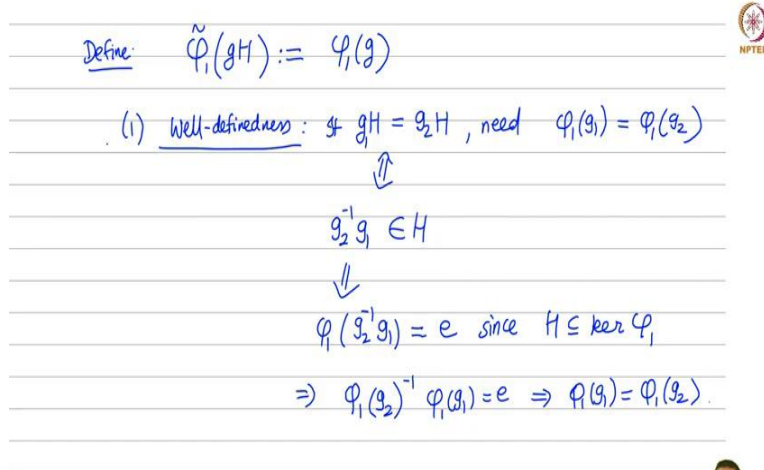 Define: φ̃₁(gH) := φ₁(g)
NPTEL
(1) Well-definedness: If g₁H = g₂H, need φ₁(g₁) = φ₁(g₂)
⇕
g₂⁻¹g₁ ∈ H
⇓
φ₁(g₂⁻¹g₁) = e since H ⊆ ker φ₁
⇒ φ₁(g₂)⁻¹ φ₁(g₁) = e ⇒ φ₁(g₁) = φ₁(g₂).